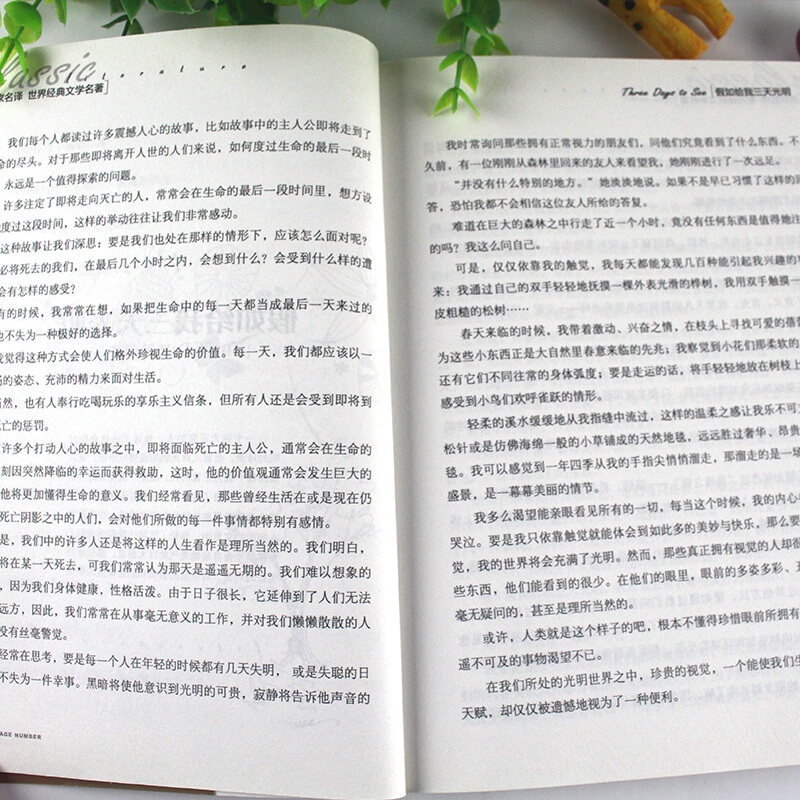 Classic
literature
家名译 世界经典文学名著
我们每个人都读过许多震撼人心的故事，比如故事中的主人公即将走到了
命的尽头。对于那些即将离开人世的人们来说，如何度过生命的最后一段时
，永远是一个值得探索的问题。
许多注定了即将走向灭亡的人，常常会在生命的最后一段时间里，想方设
度过这段时间，这样的举动往往让我们非常感动。
这种故事让我们深思：要是我们也处在那样的情形下，应该怎么面对呢？
必将死去的我们，在最后几个小时之内，会想到什么？会受到什么样的遭
会有怎样的感受？
有的时候，我常常在想，如果把生命中的每一天都当成最后一天来过的
也不失为一种极好的选择。
我觉得这种方式会使人们格外珍视生命的价值。每一天，我们都应该以一
的姿态、充沛的精力来面对生活。
当然，也有人奉行吃喝玩乐的享乐主义信条，但所有人还是会受到即将到
亡的惩罚。
许多个打动人心的故事之中，即将面临死亡的主人公，通常会在生命的
刻因突然降临的幸运而获得救助，这时，他的价值观通常会发生巨大的
他将更加懂得生命的意义。我们经常看见，那些曾经生活在或是现在仍
死亡阴影之中的人们，会对他们所做的每一件事情都特别有感情。
是，我们中的许多人还是将这样的人生看作是理所当然的。我们明白，
将在某一天死去，可我们常常认为那天是遥遥无期的。我们难以想象的
，因为我们身体健康，性格活泼。由于日子很长，它延伸到了人们无法
远方，因此，我们常常在从事毫无意义的工作，并对我们懒懒散散的人
没有丝毫警觉。
经常在思考，要是每一个人在年轻的时候都有几天失明，或是失聪的日
不失为一件幸事。黑暗将使他意识到光明的可贵，寂静将告诉他声音的
AGE NUMBER
Three Days to See 假如给我三天光明
我时常询问那些拥有正常视力的朋友们，问他们究竟看到了什么东西。不
久前，有一位刚刚从森林里回来的友人来看望我，她刚刚进行了一次远足。
“并没有什么特别的地方。”她淡淡地说。如果不是早已习惯了这样的回
答，恐怕我都不会相信这位友人所给的答复。
难道在巨大的森林之中行走了近一个小时，竟没有任何东西是值得她注
的吗？我这么问自己。
可是，仅仅依靠我的触觉，我每天都能发现几百种能引起我兴趣的事
来：我通过自己的双手轻轻地抚摸一棵外表光滑的桦树，我用双手触摸一
皮粗糙的松树……
春天来临的时候，我带着激动、兴奋之情，在枝头上寻找可爱的蓓蕾
为这些小东西正是大自然里春意来临的先兆；我察觉到小花们那柔软的
还有它们不同往常的身体弧度；要是走运的话，将手轻轻地放在树枝上
感受到小鸟们欢呼雀跃的情形。
轻柔的溪水缓缓地从我指缝中流过，这样的温柔之感让我乐不可
松针或是仿佛海绵一般的小草铺成的天然地毯，远远胜过奢华、昂贵
毯。我可以感觉到一年四季从我的手指尖悄悄溜走，那溜走的是一场
盛景，是一幕幕美丽的情节。
我多么渴望能亲眼看见所有的一切，每当这个时候，我的内心
哭泣。要是我只依靠触觉就能体会到如此多的美妙与快乐，那么要
觉，我的世界将会充满了光明。然而，那些真正拥有视觉的人却很
些东西，他们能看到的很少。在他们的眼里，眼前的多姿多彩、五
毫无疑问的，甚至是理所当然的。
或许，人类就是这个样子的吧，根本不懂得珍惜眼前所拥有
遥不可及的事物渴望不已。
在我们所处的光明世界之中，珍贵的视觉，一个能使我们生
天赋，却仅仅被遗憾地视为了一种便利。